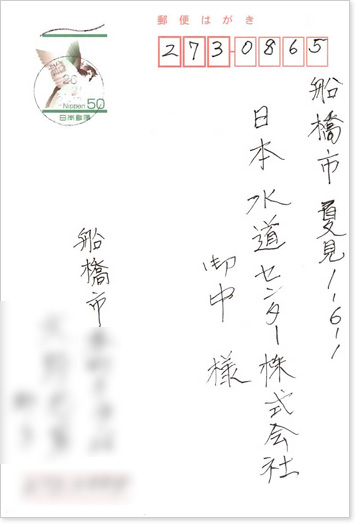 郵便はがき
273-0865
船橋市 夏見1-6-1
日本水道センター株式会社
御中 様
20
Nippon 50
日本郵便
船橋市